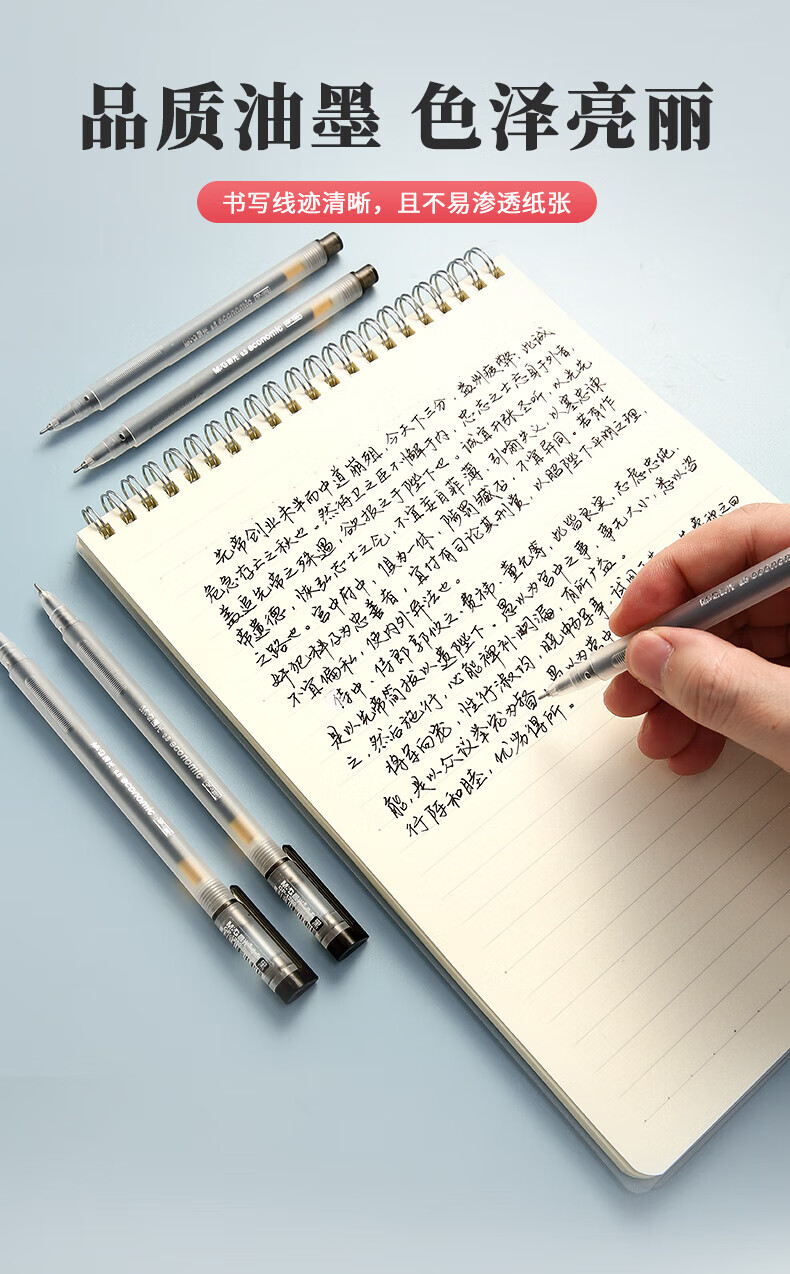 品质油墨 色泽亮丽
书写线迹清晰，且不易渗透纸张
M&G晨光 0.5 economic
M&G晨光 0.5 economic
先帝创业未半而中道崩殂，今天下三分，益州疲弊，此诚
危急存亡之秋也。然侍卫之臣不懈于内，忠志之士忘身于外者
盖追先帝之殊遇，欲报之于陛下也。诚宜开张圣听，以光先
帝遗德，恢弘志士之气，不宜妄自菲薄，引喻失义，以塞忠谏
之路也。宫中府中，俱为一体，陟罚臧否，不宜异同。若有作
奸犯科及为忠善者，宜付有司论其刑赏，以昭陛下平明之理，
不宜偏私，使内外异法也。
侍中、侍郎郭攸之、费祎、董允等，此皆良实，志虑忠纯，
是以先帝简拔以遗陛下。愚以为宫中之事，事无大小，悉以咨
之，然后施行，必能裨补阙漏，有所广益。
将军向宠，性行淑均，晓畅军事，试用
能，是以众议举宠为督 愚以为营中
行阵和睦，优劣得所。
M&G晨光 0.5 economic
M&G晨光 0.5 economic
M&G晨光 0.5 economic
M&G晨光 黑
M&G晨光 黑